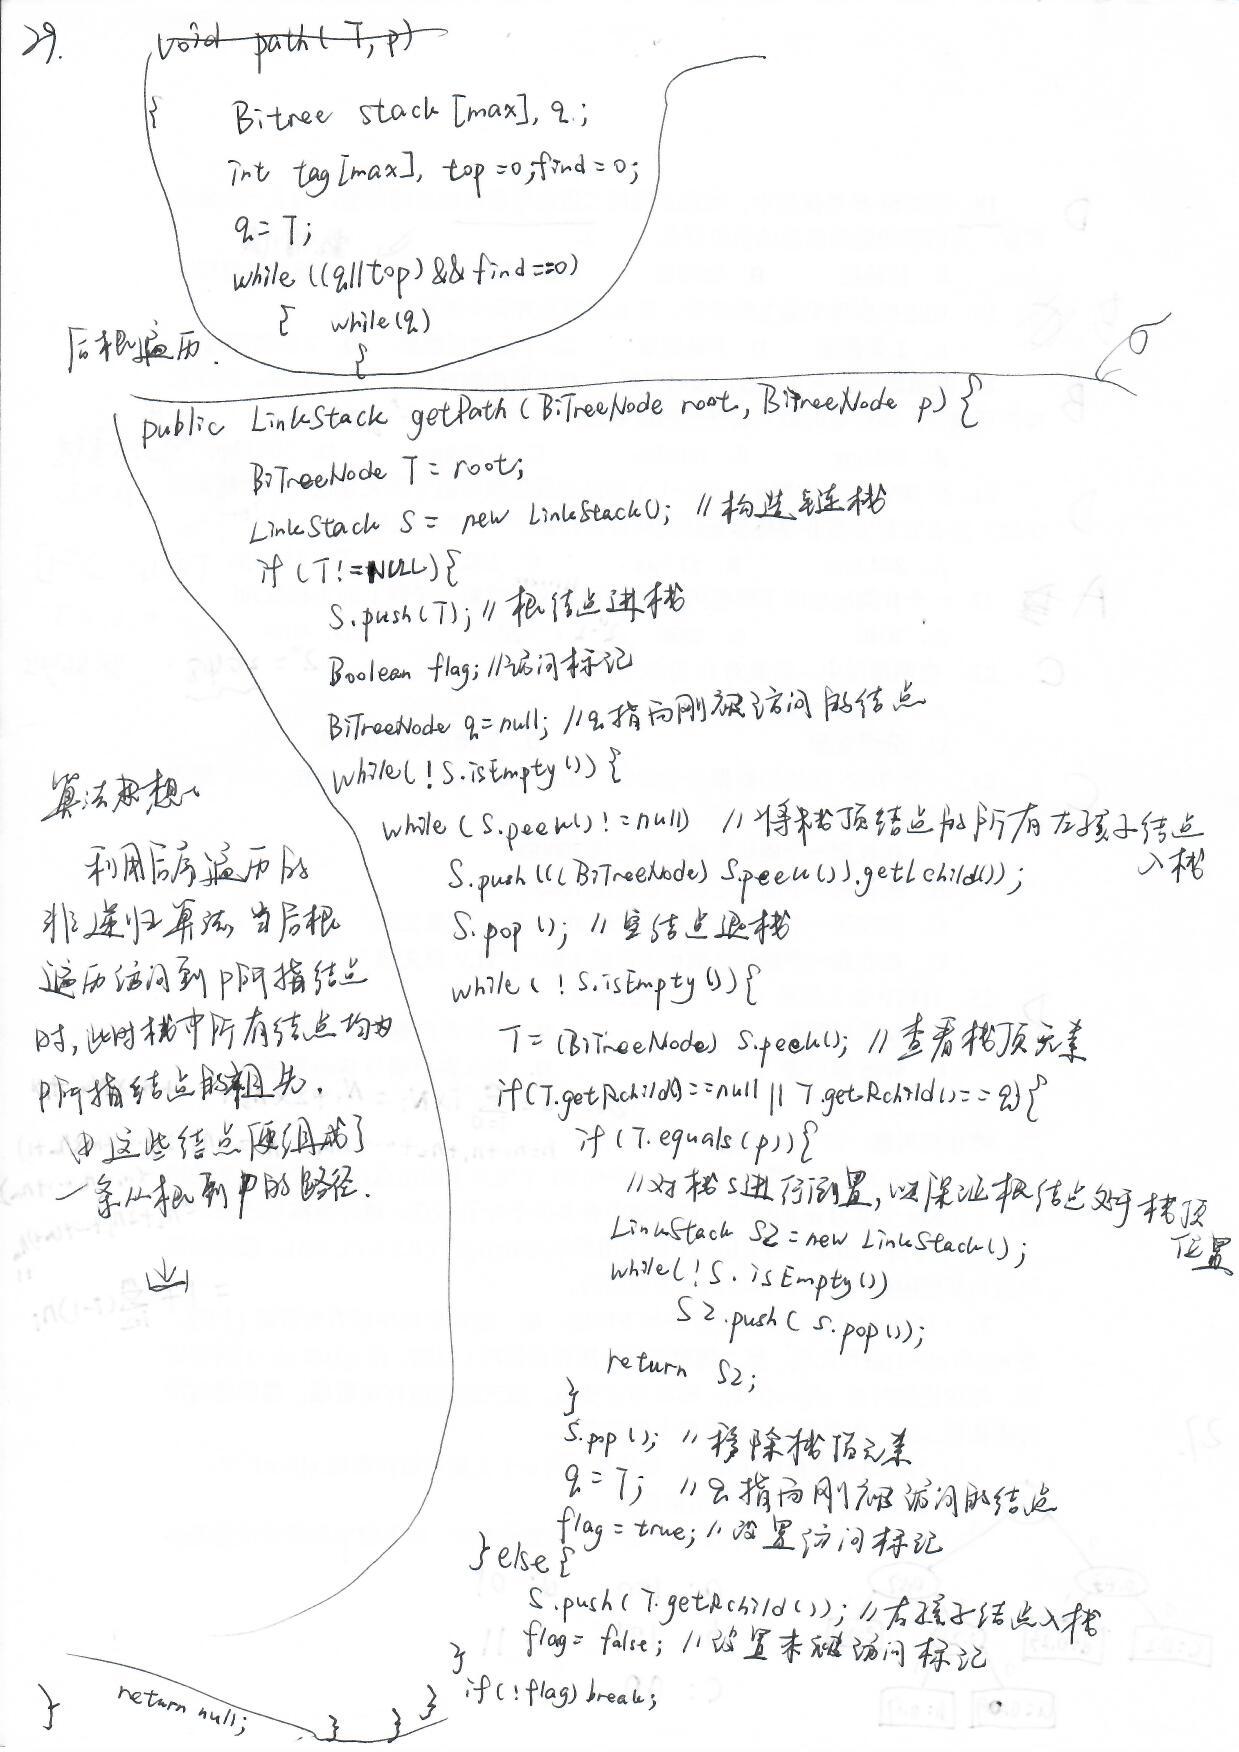 29.
void path( T, p)
{ Bitree stack [max], q;
int tag[max], top=0; find=0;
q= T;
while ((q||top) && find==0)
{ while(q)
{
后根遍历.
public LinkStack getPath (BiTreeNode root, BiTreeNode p) {
BiTreeNode T = root;
LinkStack S = new LinkStack(); // 构造链栈
if (T!=NULL) {
S.push(T); // 根结点进栈
Boolean flag; //访问标记
BiTreeNode q=null; //q指向刚被访问的结点
while( ! S.isEmpty()) {
while (S.peek()!=null) //将栈顶结点的所有左孩子结点
入栈
S.push(((BiTreeNode) S.peek()).getLchild());
S.pop(); // 空结点退栈
while ( ! S.isEmpty()) {
T= (BiTreeNode) S.peek(); //查看栈顶元素
if(T.getRchild()==null || T.getRchild()== q) {
if (T.equals(p)) {
//对栈S进行倒置,以保证根结点处于栈顶
位置
LinkStack S2=new LinkStack();
while(!S. isEmpty())
S2.push( S.pop());
return S2;
}
S.pop(); //移除栈顶元素
q= T; //q指向刚被访问的结点
flag = true; //设置访问标记
} else {
S.push( T.getRchild()); //右孩子结点入栈
flag= false; //设置未被访问标记
}
if(!flag) break;
} } }
return null;
}
算法思想:
利用后序遍历的
非递归算法,当后根
遍历访问到p所指结点
时,此时栈中所有结点均为
p所指结点的祖先.
由这些结点便组成了
一条从根到p的路径.